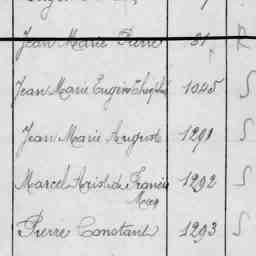 Jean Marie Pierre 31 R
Jean Marie Eugène Théophile 1045 S
Jean Marie Auguste 1291 S
Marcel Aristide Francis 1292 S
Pierre Constant 1293 S